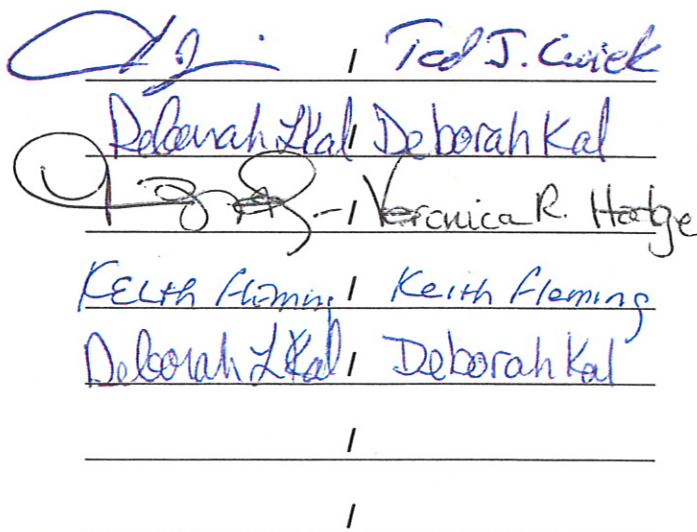 / Ted J. Cwiek
Deborah L Kal / Deborah Kal
/ Veronica R. Hodge
Keith Fleming / Keith Fleming
Deborah L Kal / Deborah Kal
/
/